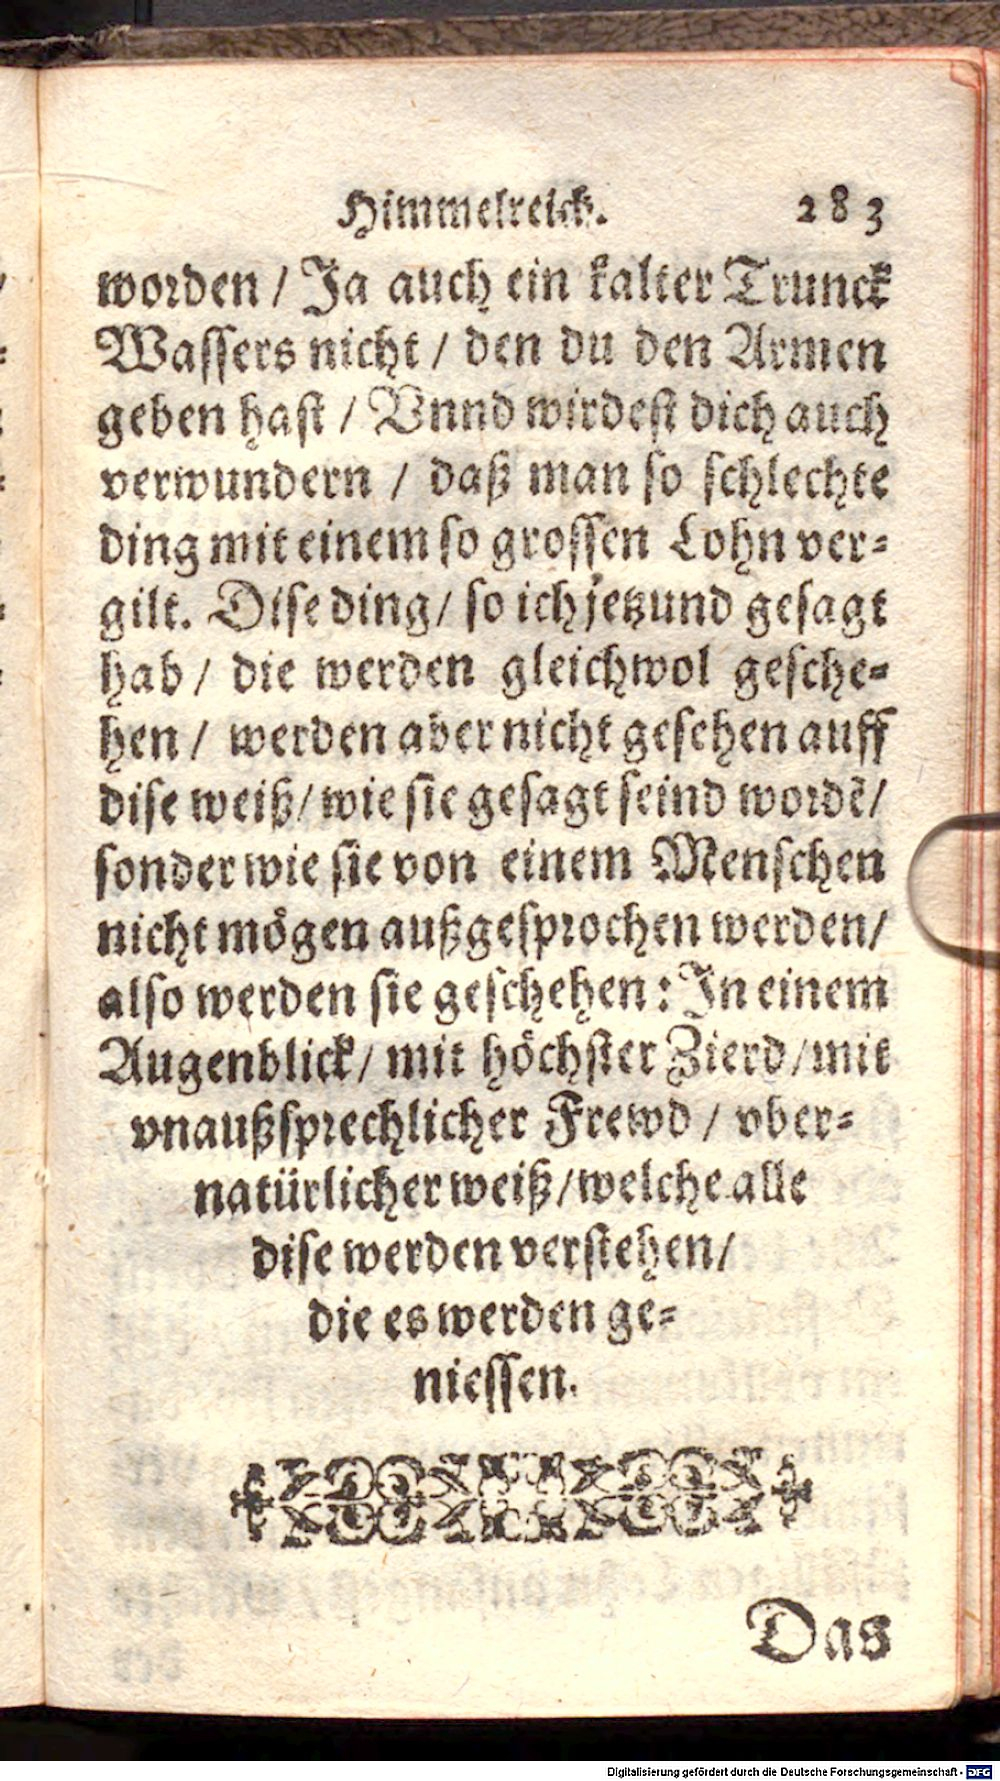 Himmelreich. 283
worden / Ja auch ein kalter Trunck
Wassers nicht / den du den Armen
geben hast / Vnnd wirdest dich auch
verwundern / daß man so schlechte
ding mit einem so grossen Lohn ver-
gilt. Dise ding / so ich jetzund gesagt
hab / die werden gleichwol gesche-
hen / werden aber nicht geschen auff
dise weiß / wie sie gesagt seind wordẽ /
sonder wie sie von einem Menschen
nicht mögen außgesprochen werden /
also werden sie geschehen: In einem
Augenblick / mit höchster Zierd / mit
vnaußsprechlicher Frewd / vber-
natürlicher weiß / welche alle
dise werden verstehen /
die es werden ge-
niessen.
Das
Digitalisierung gefördert durch die Deutsche Forschungsgemeinschaft - DFG